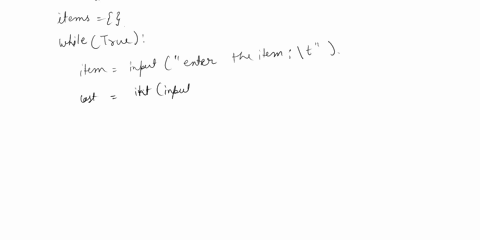 items = {}
while (True):
item = input ("enter the item : \t" ).
cost = int (input